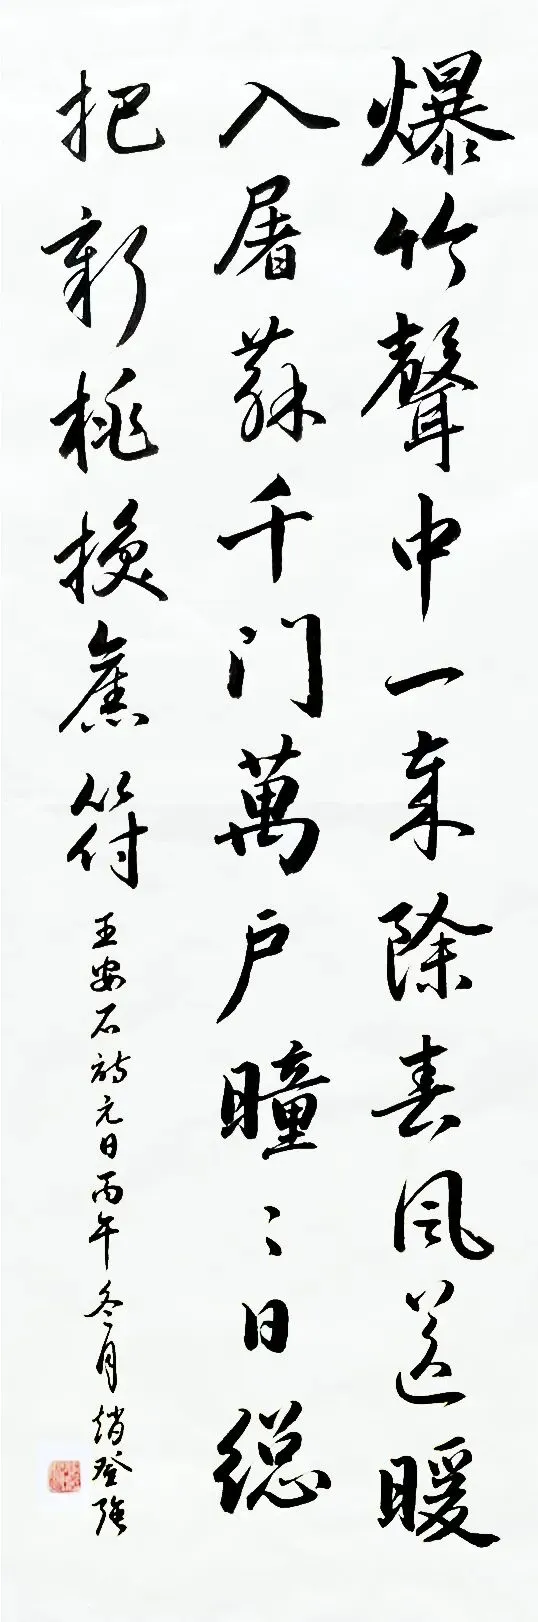 爆竹聲中一歲除春風送暖
入屠蘇千门萬户曈〻日總
把新桃換舊符 王安石詩元日丙午冬月趙登強